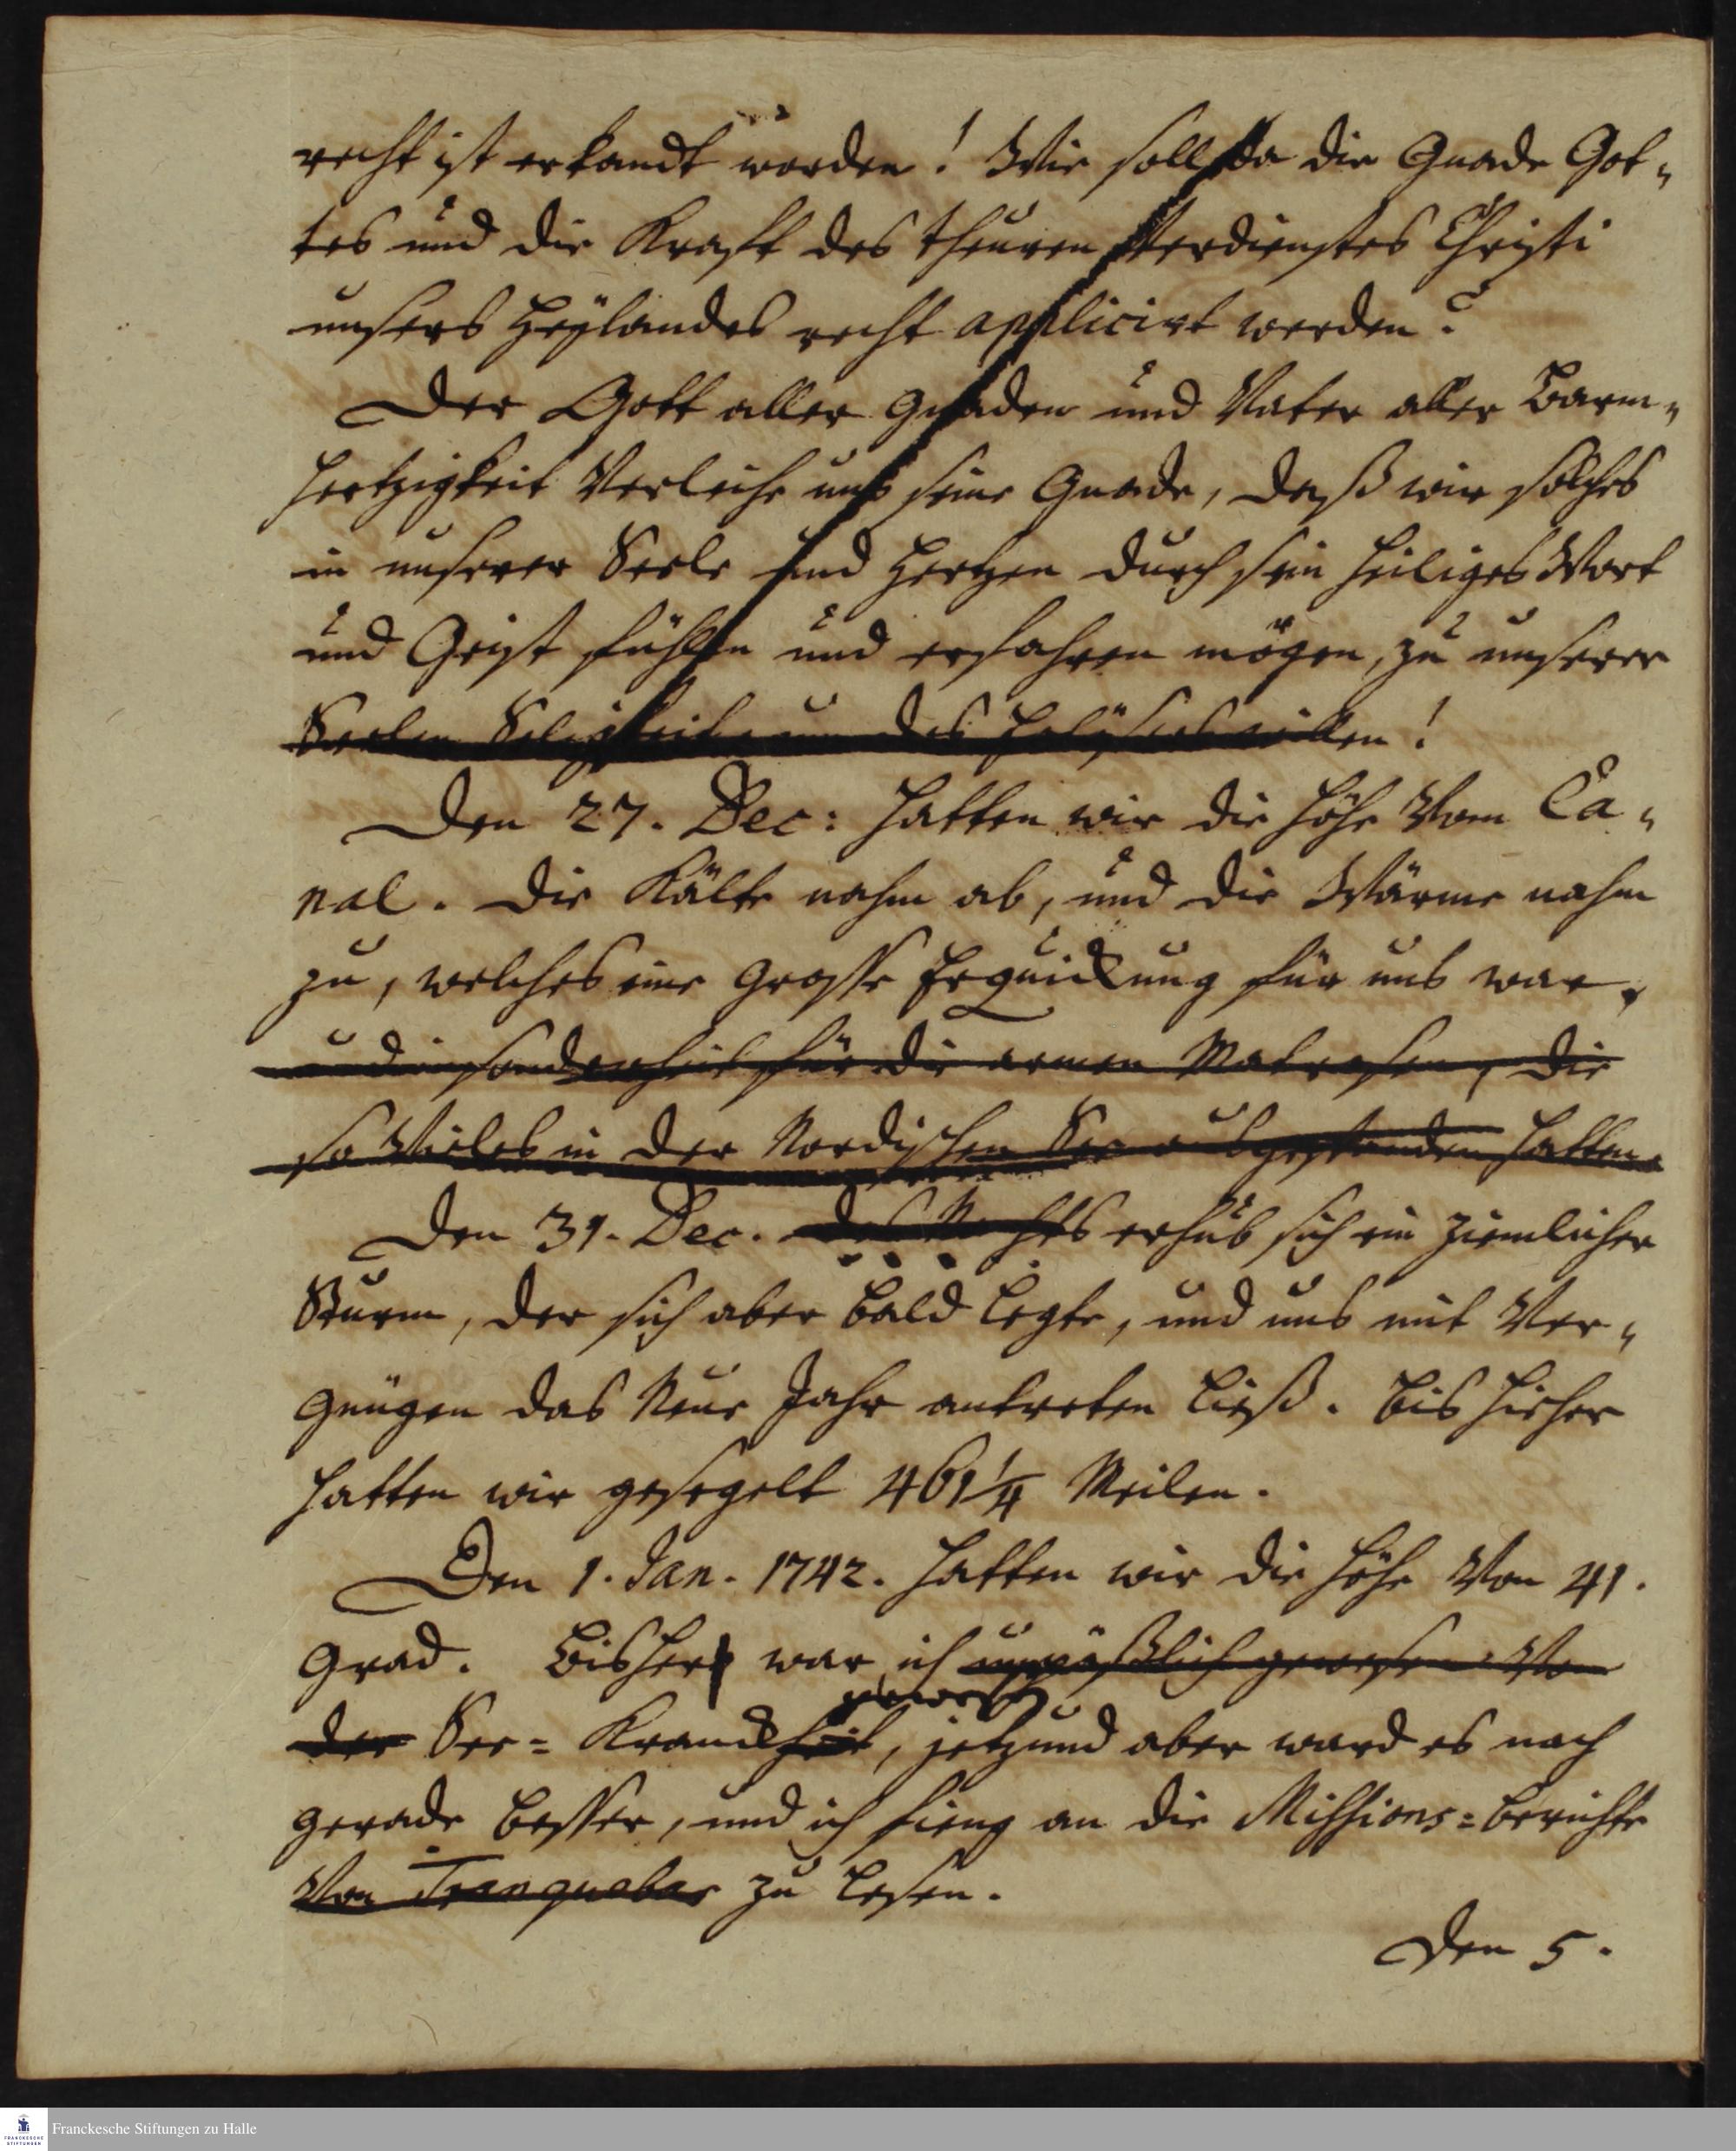 recht ist erkandt worden! Wie soll da die Gnade Got-
tes und die Kraft des theuren Verdienstes Christi
unsers Heÿlandes recht applicirt werden?
Der Gott aller Gnaden und Vater aller Barm-
hertzigkeit Verleihe uns seine Gnade, daß wir solches
in unserer Seele und Hertzen durch sein heiliges Wort
und Geist fühlen und erfahren mögen, zu unserer
Seelen Seligkeit um des Erlösers willen!
Den 27. Dec: hatten wir die Höhe Vom Ca-
nal. Die Kälte nahm ab, und die Wärme nahm
zu, welches eine Grosse Erquickung für uns war,
und insonderheit für die armen Matrosen, die
so Vieles in der Nordischen See ausgestanden hatten.
Den 31. Dec. des Nachts erhub sich ein ziemlicher
Sturm, der sich aber bald legte, und uns mit Ver-
gnügen das Neue Jahr antreten ließ. Bis hieher
hatten wir gesegelt 461 1/4 Meilen.
Den 1. Jan. 1742. hatten wir die Höhe Von 41.
Grad. Bisher war ich unpäßlich gewesen Von
der See-Kranckheit, jetzund aber ward es nach
gewesen
gerade besser, und ich fieng an die Missions-Berichte
Von Tranquebar zu lesen.
Den 5.
Franckesche Stiftungen zu Halle
FRANCKESCHE
STIFTUNGEN